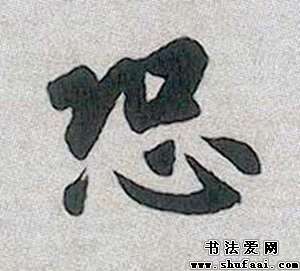 恐
书法爱网
www.shufaai.com